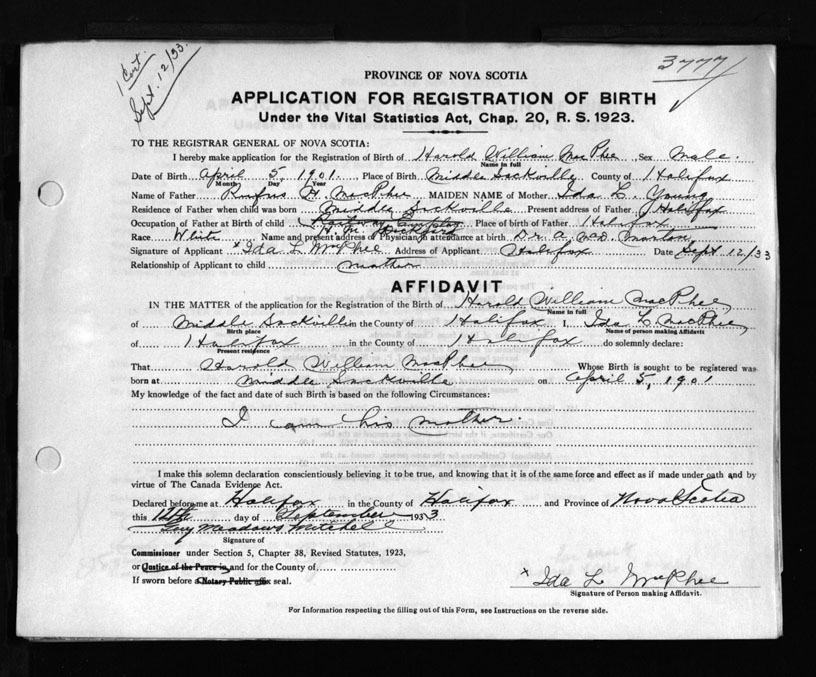 1 Cert.
Sept. 12/33.
3777
PROVINCE OF NOVA SCOTIA
APPLICATION FOR REGISTRATION OF BIRTH
Under the Vital Statistics Act, Chap. 20, R. S. 1923.
TO THE REGISTRAR GENERAL OF NOVA SCOTIA:
I hereby make application for the Registration of Birth of Harold William MacPhee Sex Male.
Name in full
Date of Birth April 5, 1901. Place of Birth Middle Sackville County of Halifax
Month Day Year
Name of Father Rufus H. MacPhee MAIDEN NAME of Mother Ida L. Young
Residence of Father when child was born Middle Sackville Present address of Father Halifax
Occupation of Father at Birth of child Place of Birth of Father Halifax
Race White Name and present address of Physician in attendance at birth Dr. A. McD. Morton
Signature of Applicant x Ida L MacPhee Address of Applicant Halifax Date Sept 12/33
Relationship of Applicant to child mother
AFFIDAVIT
IN THE MATTER of the application for the Registration of the Birth of Harold William MacPhee
Name in full
of Middle Sackville in the County of Halifax I, Ida L MacPhee
Birth place Name of person making Affidavit
of Halifax in the County of Halifax do solemnly declare:
Present residence
That Harold William MacPhee Whose Birth is sought to be registered was
born at Middle Sackville on April 5, 1901
My knowledge of the fact and date of such Birth is based on the following Circumstances:
I am his mother.
I make this solemn declaration conscientiously believing it to be true, and knowing that it is of the same force and effect as if made under oath and by
virtue of The Canada Evidence Act.
Declared before me at Halifax in the County of Halifax and Province of Nova Scotia
this 12th day of September 1933
Guy Meadows Mitchell
Signature of
Commissioner under Section 5, Chapter 38, Revised Statutes, 1923,
or Justice of the Peace in and for the County of
If sworn before a Notary Public affix seal.
x Ida L MacPhee
Signature of Person making Affidavit.
For Information respecting the filling out of this Form, see Instructions on the reverse side.